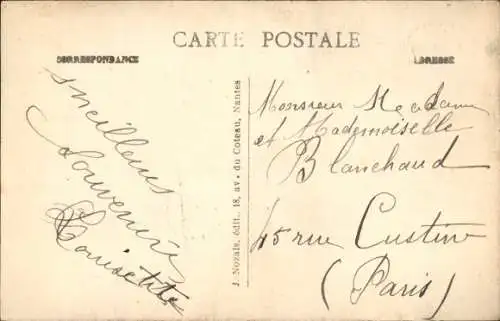 CARTE POSTALE
CORRESPONDANCE
ADRESSE
meilleurs
Souvenirs
Louisette
J. Nozais, édit., 18, av. du Coteau, Nantes
Monsieur Madame
et Mademoiselle
Blanchaud
45 rue Custine
(Paris)